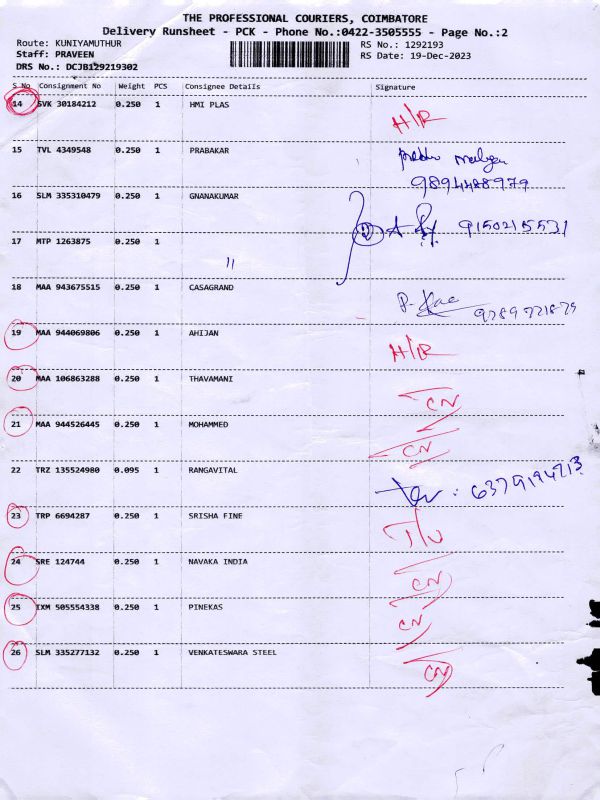 THE PROFESSIONAL COURIERS, COIMBATORE
Delivery Runsheet - PCK - Phone No.:0422-3505555 - Page No.:2
Route: KUNIYAMUTHUR RS No.: 1292193
Staff: PRAVEEN RS Date: 19-Dec-2023
DRS No.: DCJB129219302
S No Consignment No Weight PCS Consignee Details Signature
14 SVK 30184212 0.250 1 HMI PLAS H/R
15 TVL 4349548 0.250 1 PRABAKAR
9894488979
16 SLM 335310479 0.250 1 GNANAKUMAR
9150215531
17 MTP 1263875 0.250 1 "
18 MAA 943675515 0.250 1 CASAGRAND
19 MAA 944069806 0.250 1 AHIJAN H/R
20 MAA 106863288 0.250 1 THAVAMANI CN
21 MAA 944526445 0.250 1 MOHAMMED CN
22 TRZ 135524980 0.095 1 RANGAVITAL
23 TRP 6694287 0.250 1 SRISHA FINE
24 SRE 124744 0.250 1 NAVAKA INDIA CN
25 IXM 505554338 0.250 1 PINEKAS CN
26 SLM 335277132 0.250 1 VENKATESWARA STEEL CN